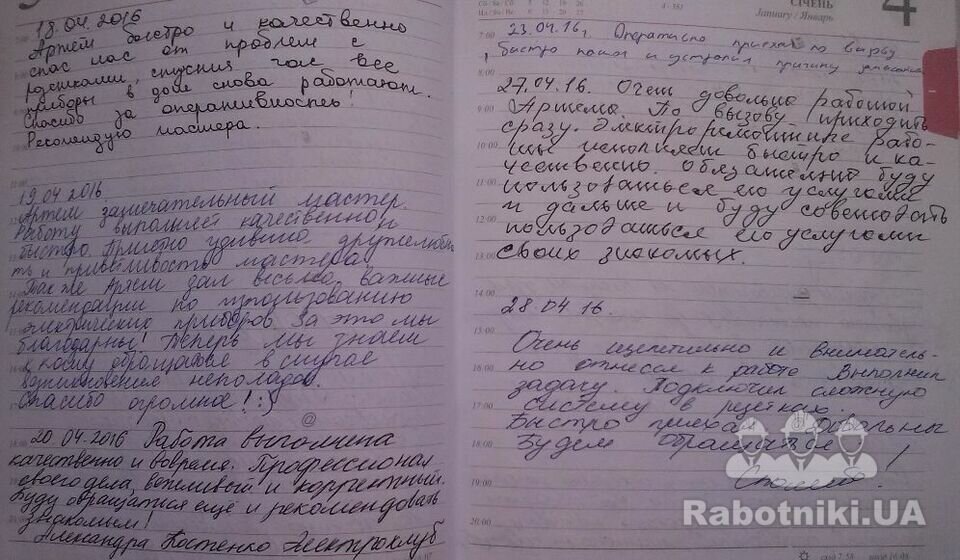 18.04.2016
Артём быстро и качественно
спас нас от проблем с
розетками, спустя час все
приборы в доме снова работают.
Спасибо за оперативность!
Рекомендую мастера.
19.04.2016
Артем замечательный мастер.
Работу выполняет качественно и
быстро. Приятно удивило дружелюбно
ть и приветливость мастера
Так же Артем дал весьма важные
рекомендации по использованию
электрических приборов. За это мы
благодарны! Теперь мы знаем
к кому обращаться в случае
возникновения неполадок.
Спасибо огромное! :)
20.04.2016 Работа выполнена
качественно и вовремя. Профессионал
своего дела, вежливый и корректный.
Буду обращаться ещё и рекомендовать
знакомым!
Александра Костенко Электроклуб
СІЧЕНЬ
January / Январь
4
4 - 361
7:00
23.04.16г. Оперативно приехал по вызову,
быстро нашел и устранил причину
8:00
27.04.16. Очень довольна работой
9:00
Артема. По вызову приходить
сразу. Электроремонтные рабо-
10:00
ты исполняет быстро и ка-
чественно. Обязательно буду
11:00
пользоваться его услугами
и дальше и буду советовать
12:00
пользоваться его услугами
13:00
своих знакомых.
14:00
28.04.16.
15:00
Очень щепетильно и вниматель-
но отнесся к работе Выполнил
16:00
задачу. Подключил сложную
систему в розетках.
17:00
Быстро приехал довольны
18:00
Будем обращаться!
19:00
20:00
Rabotniki.UA